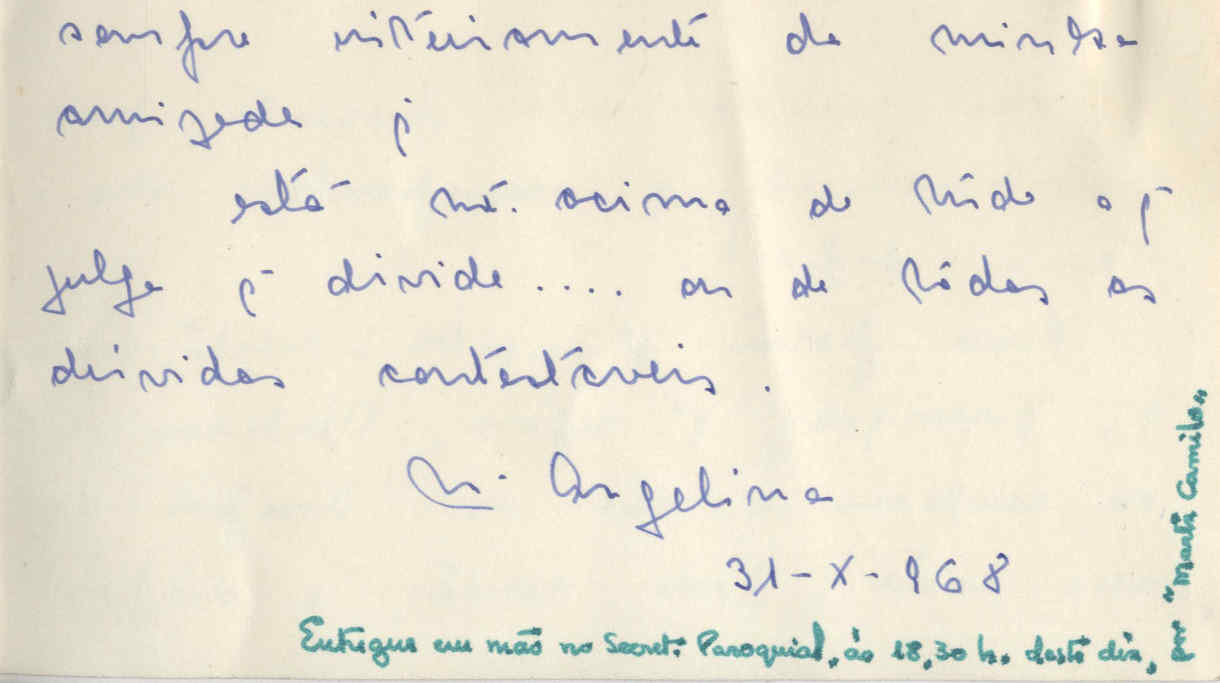 sempre inteiramente da minha
amizade q
está mto. acima de tudo o q
julga q divide.... ou de tôdas as
dúvidas contestáveis.
M. Angelina
31-X-968
Entregue em mão no Secret. Paroquial, às 18,30 h. deste dia,
por "Marta Camilo"